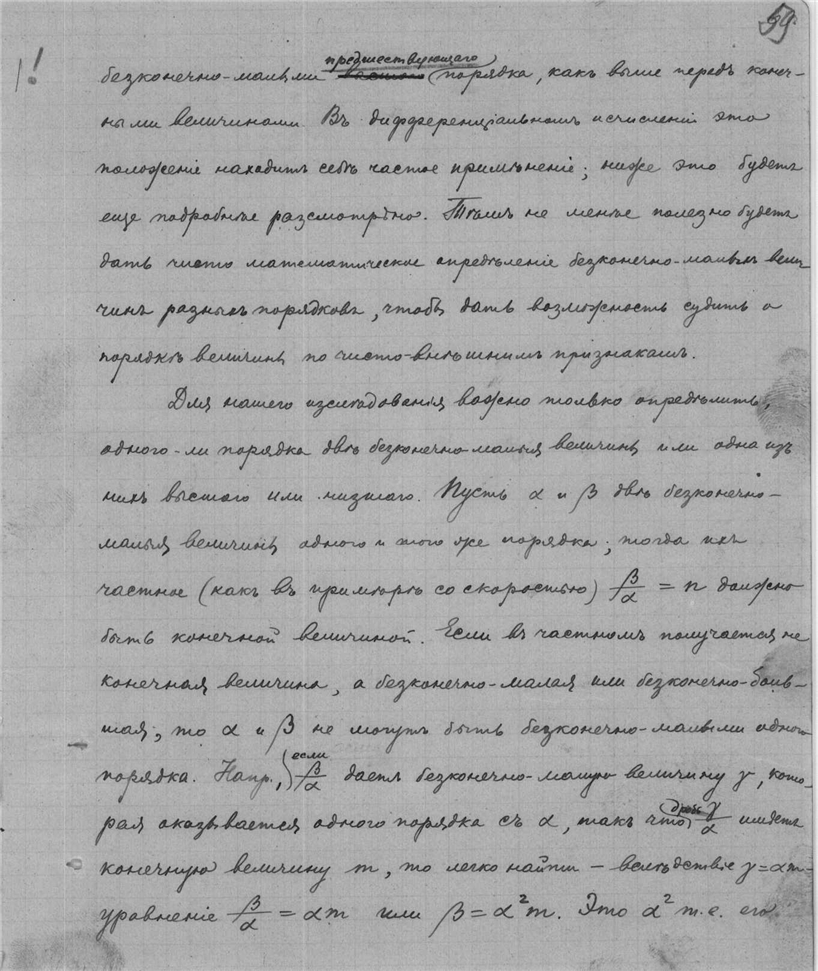 59.
предшествующаго
безконечно-малыми порядка, какъ выше передъ конеч-
ными величинами. Въ дифференціальномъ исчисленіи это
положеніе находитъ себѣ частое примѣненіе; ниже это будетъ
еще подробнѣе разсмотрѣно. Тѣмъ не менѣе полезно будетъ
дать чисто математическое опредѣленіе безконечно-малыхъ вели-
чинъ разныхъ порядковъ, чтобы дать возможность судить о
порядкѣ величины по чисто-внѣшнимъ признакамъ.
Для нашего изслѣдованія важно только опредѣлить,
одного-ли порядка двѣ безконечно-малыя величины или одна изъ
нихъ высшаго или низшаго. Пусть α и β двѣ безконечно-
малыя величины одного и того же порядка; тогда ихъ
частное (какъ въ примѣрѣ со скоростью) β/α = n должно
быть конечной величиной. Если въ частномъ получается не
конечная величина, а безконечно-малая или безконечно-боль-
шая, то α и β не могутъ быть безконечно-малыми одного
порядка. Напр., если β/α даетъ безконечно-малую величину γ, кото-
рая оказывается одного порядка съ α, такъ что дробь γ/α имѣетъ
конечную величину m, то легко найти – вслѣдствіе γ=αm–
уравненіе β/α = αm или β = α²m. Это α² т.е. его